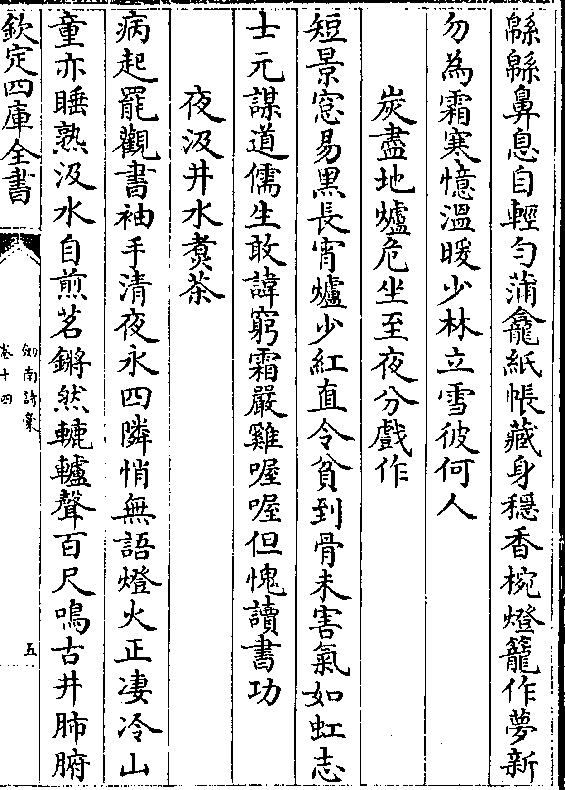 緜緜鼻息自輕勻蒲龕紙帳藏身穩香椀燈籠作夢新
勿為霜寒憶溫暖少林立雪彼何人
炭盡地爐危坐至夜分戲作
短景窓易黒長宵爐少紅直令貧到骨未害氣如虹志
士元謀道儒生敢諱窮霜嚴雞喔喔但愧讀書功
夜汲井水煑茶
病起罷觀書袖手清夜永四隣悄無語燈火正凄冷山
童亦睡熟汲水自煎茗鏘然轆轤聲百尺鳴古井肺腑
欽定四庫全書
劒南詩槀
卷十四
五